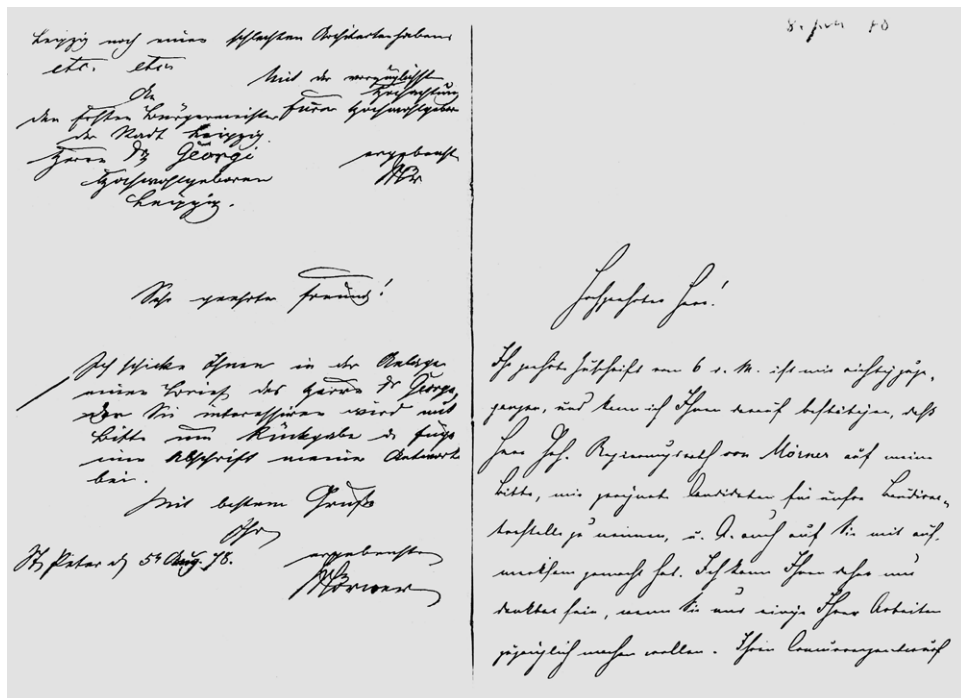 Leipzig noch einen schlechten Architekten haben
etc. etc.
Mit der vorzüglichsten
Hochachtung
An
den Ersten Bürgermeister
Euer Hochwohlgeboren
der Stadt Leipzig
Herrn Dr Georgi
ergebenster
Hochwohlgeboren
Leipzig.
Sehr geehrter Freund!
Ich schicke Ihnen in der Anlage
einen Brief des Herrn Dr Georgi,
der Sie interessiren wird mit
Bitte um Rückgabe u füge
eine Abschrift meiner Antwort
bei.
Mit bestem Gruß
Ihr
St. Peter d 5t Aug. 78.
ergebenster
Mörner
8. Juli 78
Hochgeehrter Herr!
Ihr geehrte Zuschrift vom 6 d. M. ist mir richtig zuge-
gangen, und kann ich Ihnen darauf bestätigen, daß
Herr Geh. Regierungsrath von Mörner auf meine
Bitte, mir geeignete Candidaten für unsre Baudirec-
torstelle zu nennen, u. A. auch auf Sie mich auf-
merksam gemacht hat. Ich kann Ihnen daher nur
dankbar sein, wenn Sie uns einige Ihrer Arbeiten
zugänglich machen wollen. Ihren Concurrenzentwurf